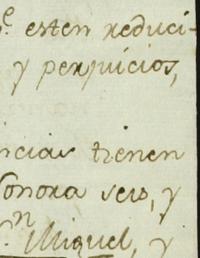 e esten reduci-
y perjuicios,
ncias tienen
Sonora seis, y
n Miguel, y